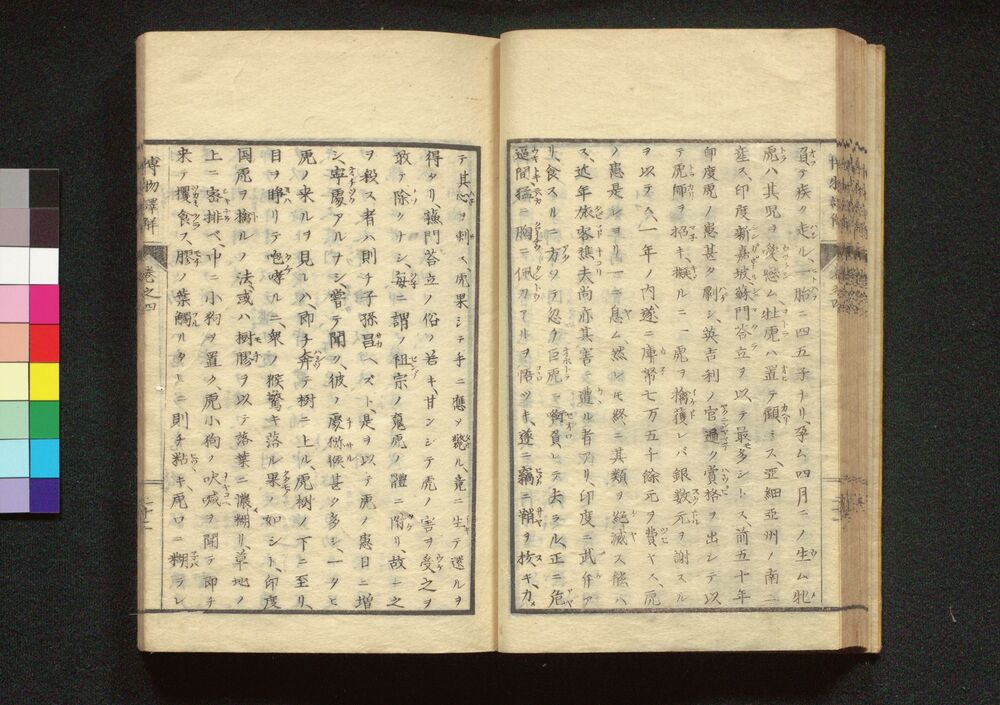 負テ疾ク走ル、一胎ニ四五子ナリ、孕ム四月ニノ生ム牝
虎ハ其児ヲ愛戀ム、牡虎ハ置テ顧ミス、亜細亜州ノ南ニ
産ス、印度新嘉坡蘇門答立ヲ以テ最多シトス、前五十年
印度虎ノ患甚タ劇シ英吉利ノ官過ク賞格ヲ出シテ以
テ虎師ヲ招キ、擬ルニ一虎ヲ擒獲レバ銀数元ヲ謝スル
ヲ以テス、一年ノ内遂ニ庫帑七万五千餘元ヲ費ヤス、虎
ノ患是ヨリ一ニ息ム、然レ𪜈終ニ其類ヲ絶滅ス能ハ
ス、近年旅客樵夫尚亦其害ニ遭ル者アリ、印度ニ武弁ア
リ、食スルニ方テ忽ク巨虎ニ啣負レテ去ラル正ニ危
逼間猛ニ胸ニ佩カタルヲ悟ツキ、遂ニ竊ニ鞘ヲ抜キ、カ
テ其心ヲ刺ス、虎果シテ手ニ應ソ斃ル、竟ニ生テ還ルヲ
得タリ、蘇門答立ノ俗ノ若キ、甘ンシテ虎ノ害ヲ受之ヲ
敢テ除クナシ、毎ニ謂ノ祖宗ノ魂虎ノ體ニ附リ、故ニ之
ヲ殺ス者ハ則チ子孫昌ヘズト、是ヲ以テ虎ノ患日ニ増
シ、寧處アルナシ、嘗テ聞ク、彼ノ處猕猴甚タ多シ、一タヒ
虎ノ来ルヲ見レハ、即チ奔テ樹ニ上ル、虎樹ノ下ニ至リ、
目ヲ睜リテ咆哮ルニ、衆ノ猴驚キ落ル果ノ如シト、印度
国虎ヲ擒ルノ法、或ハ樹膠ヲ以テ落葉ニ濃糊リ草地ノ
上ニ密排ベ、中ニ小狗ヲ置ク、虎小狗ノ吠喊ヲ聞テ即チ
来テ攫食フ、膠ノ葉觸ルタヒニ則チ粘キ虎口ニ糊ラレ
博物譯解
巻之四